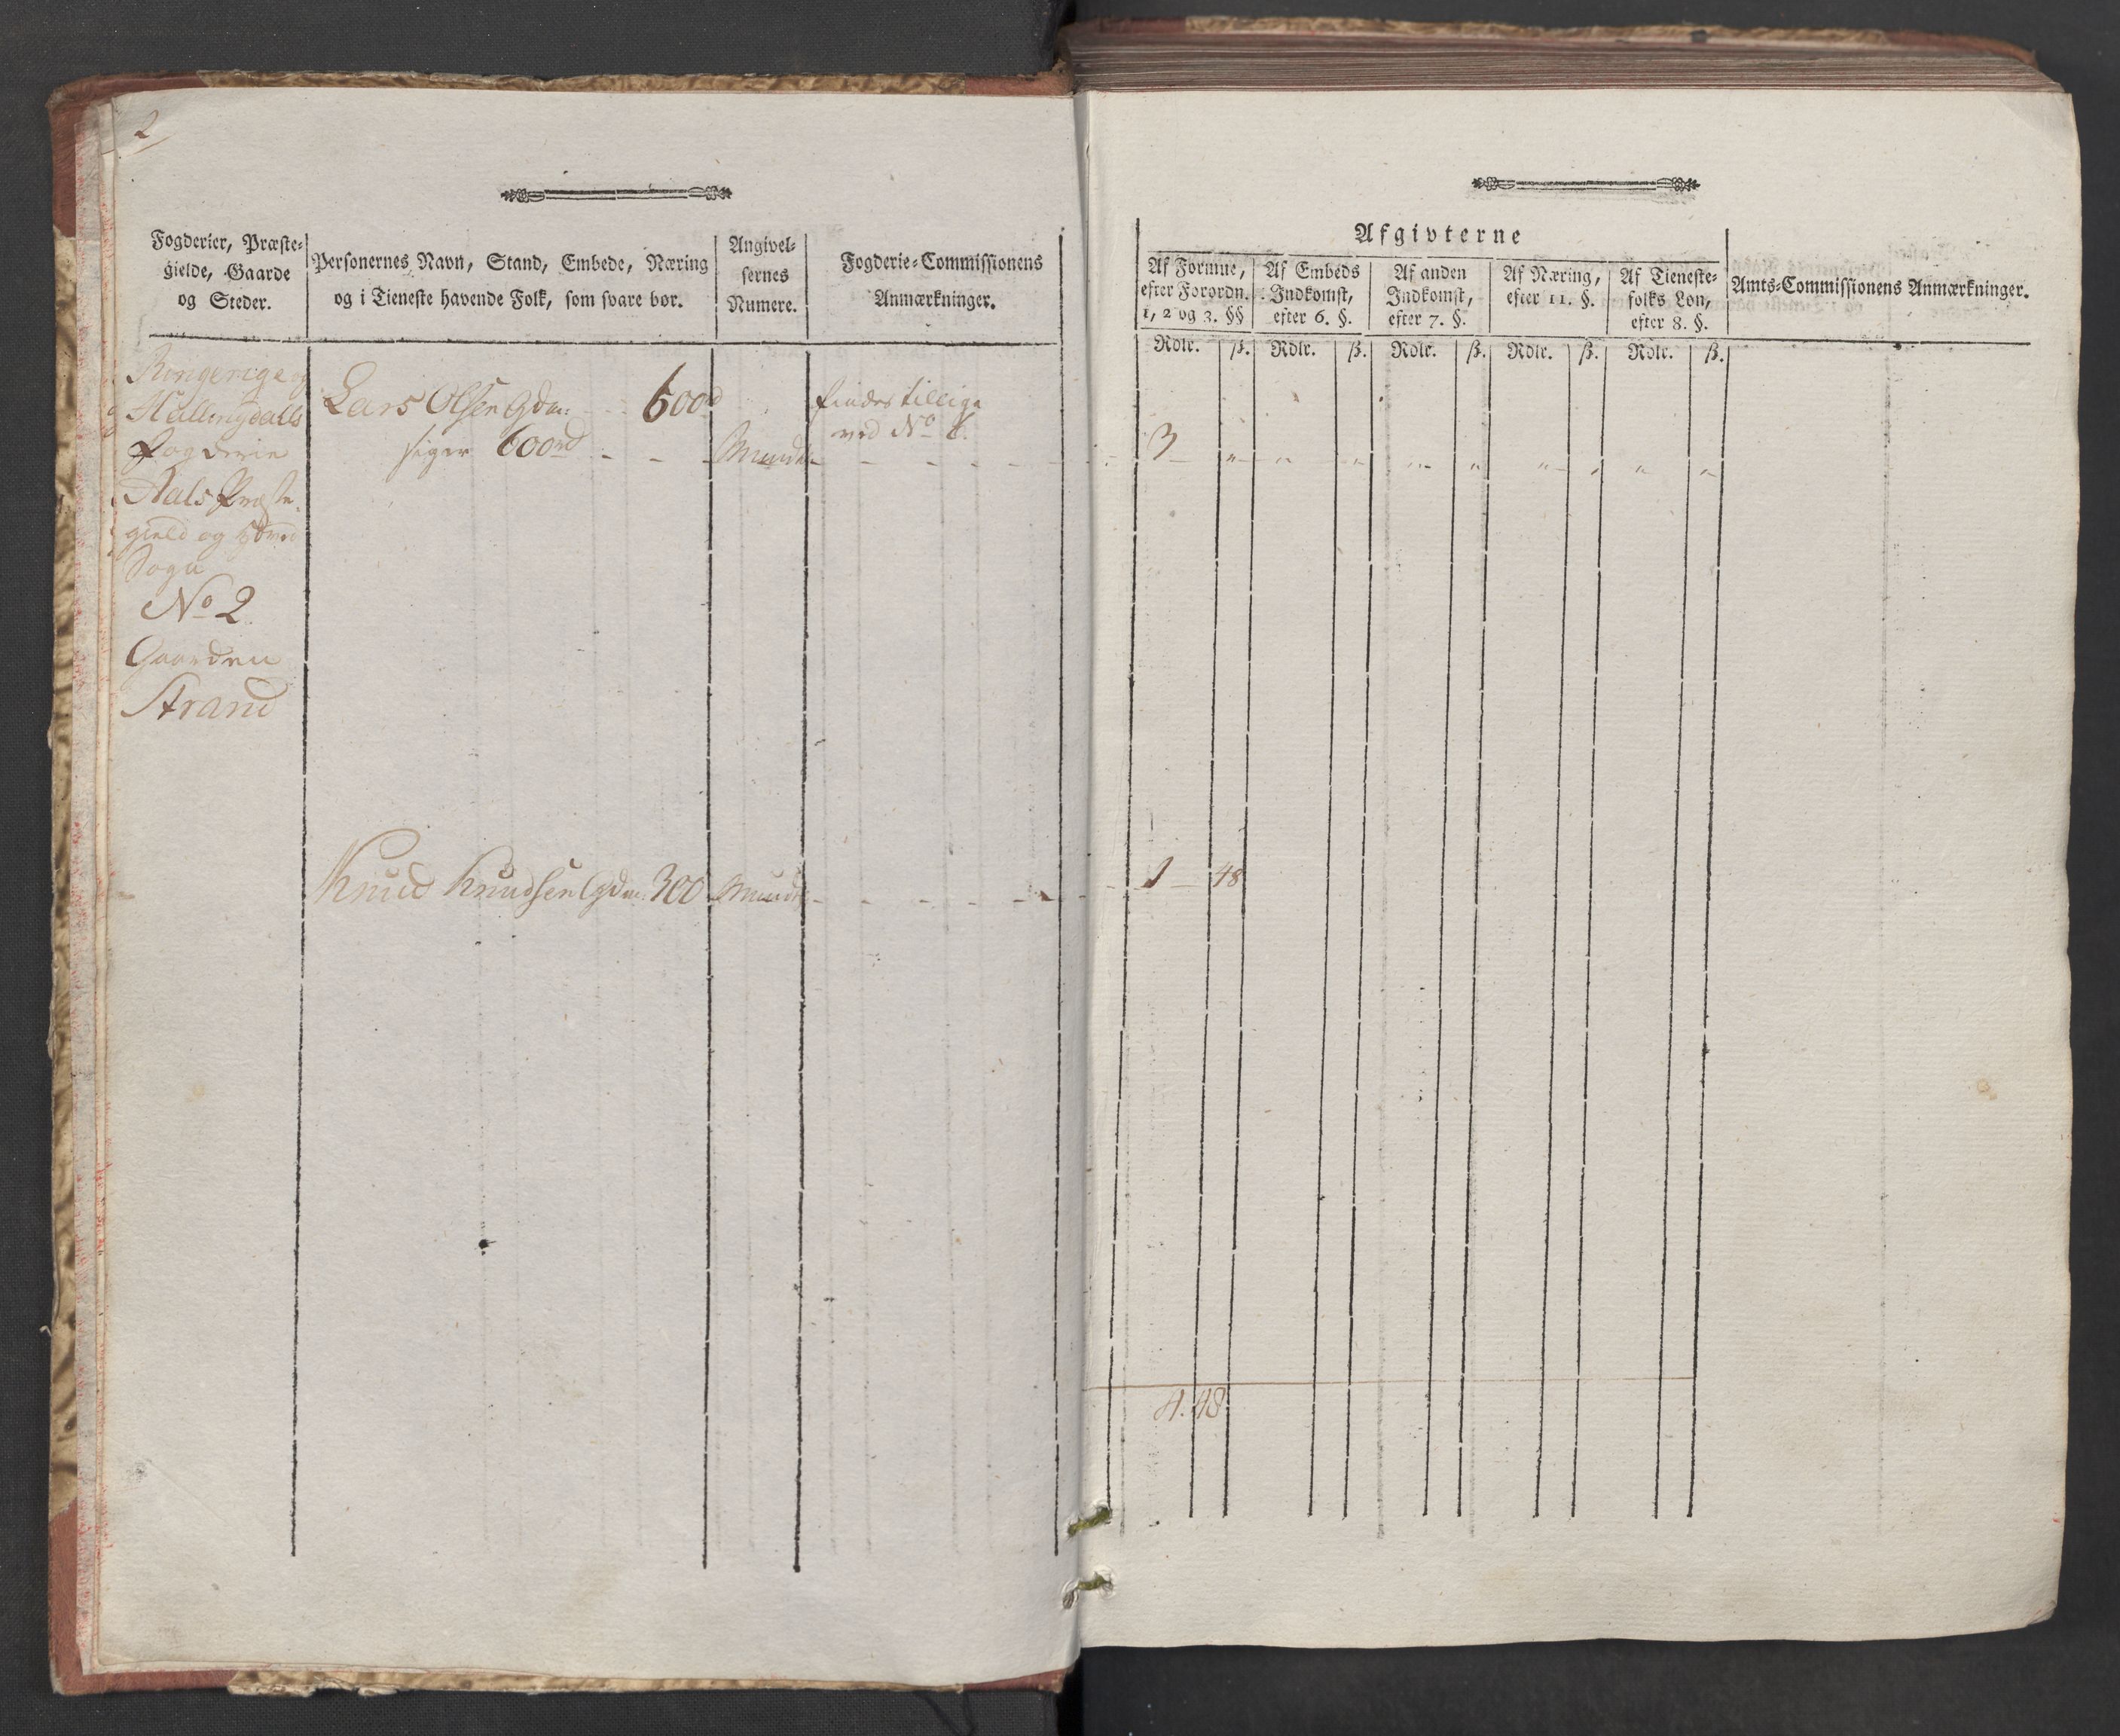 2
Fogderier, Præste-
gielde, Gaarde
og Steder.
Personernes Navn, Stand, Embede, Næring
og i Tieneste havende Folk, som svare bør.
Angivel-
sernes
Numere.
Fogderie-Commissionens
Anmærkninger.
Ringerige og
Hallingdals
Fogderie
Aals Præste-
gield og Hoved
Sogn
No 2
Gaarden
Strand
Lars Olsen Gdm: 600rd
siger 600rd - - - Mundtl
findes tillige
ved No
Knud Knudsen Gdm: 300 Mundtl
Afgivterne
Af Formue,
efter Forordn.
1, 2 og 3. §§
Af Embeds
Indkomst,
efter 6. §.
Af anden
Indkomst,
efter 7. §.
Af Næring,
efter 11. §.
Af Tieneste-
folks Løn,
efter 8. §.
Amts-Commissionens Anmærkninger.
Rdlr. ß. Rdlr. ß. Rdlr. ß. Rdlr. ß. Rdlr. ß.
3 - " " " " " " " " "
1 - 48
4. 48